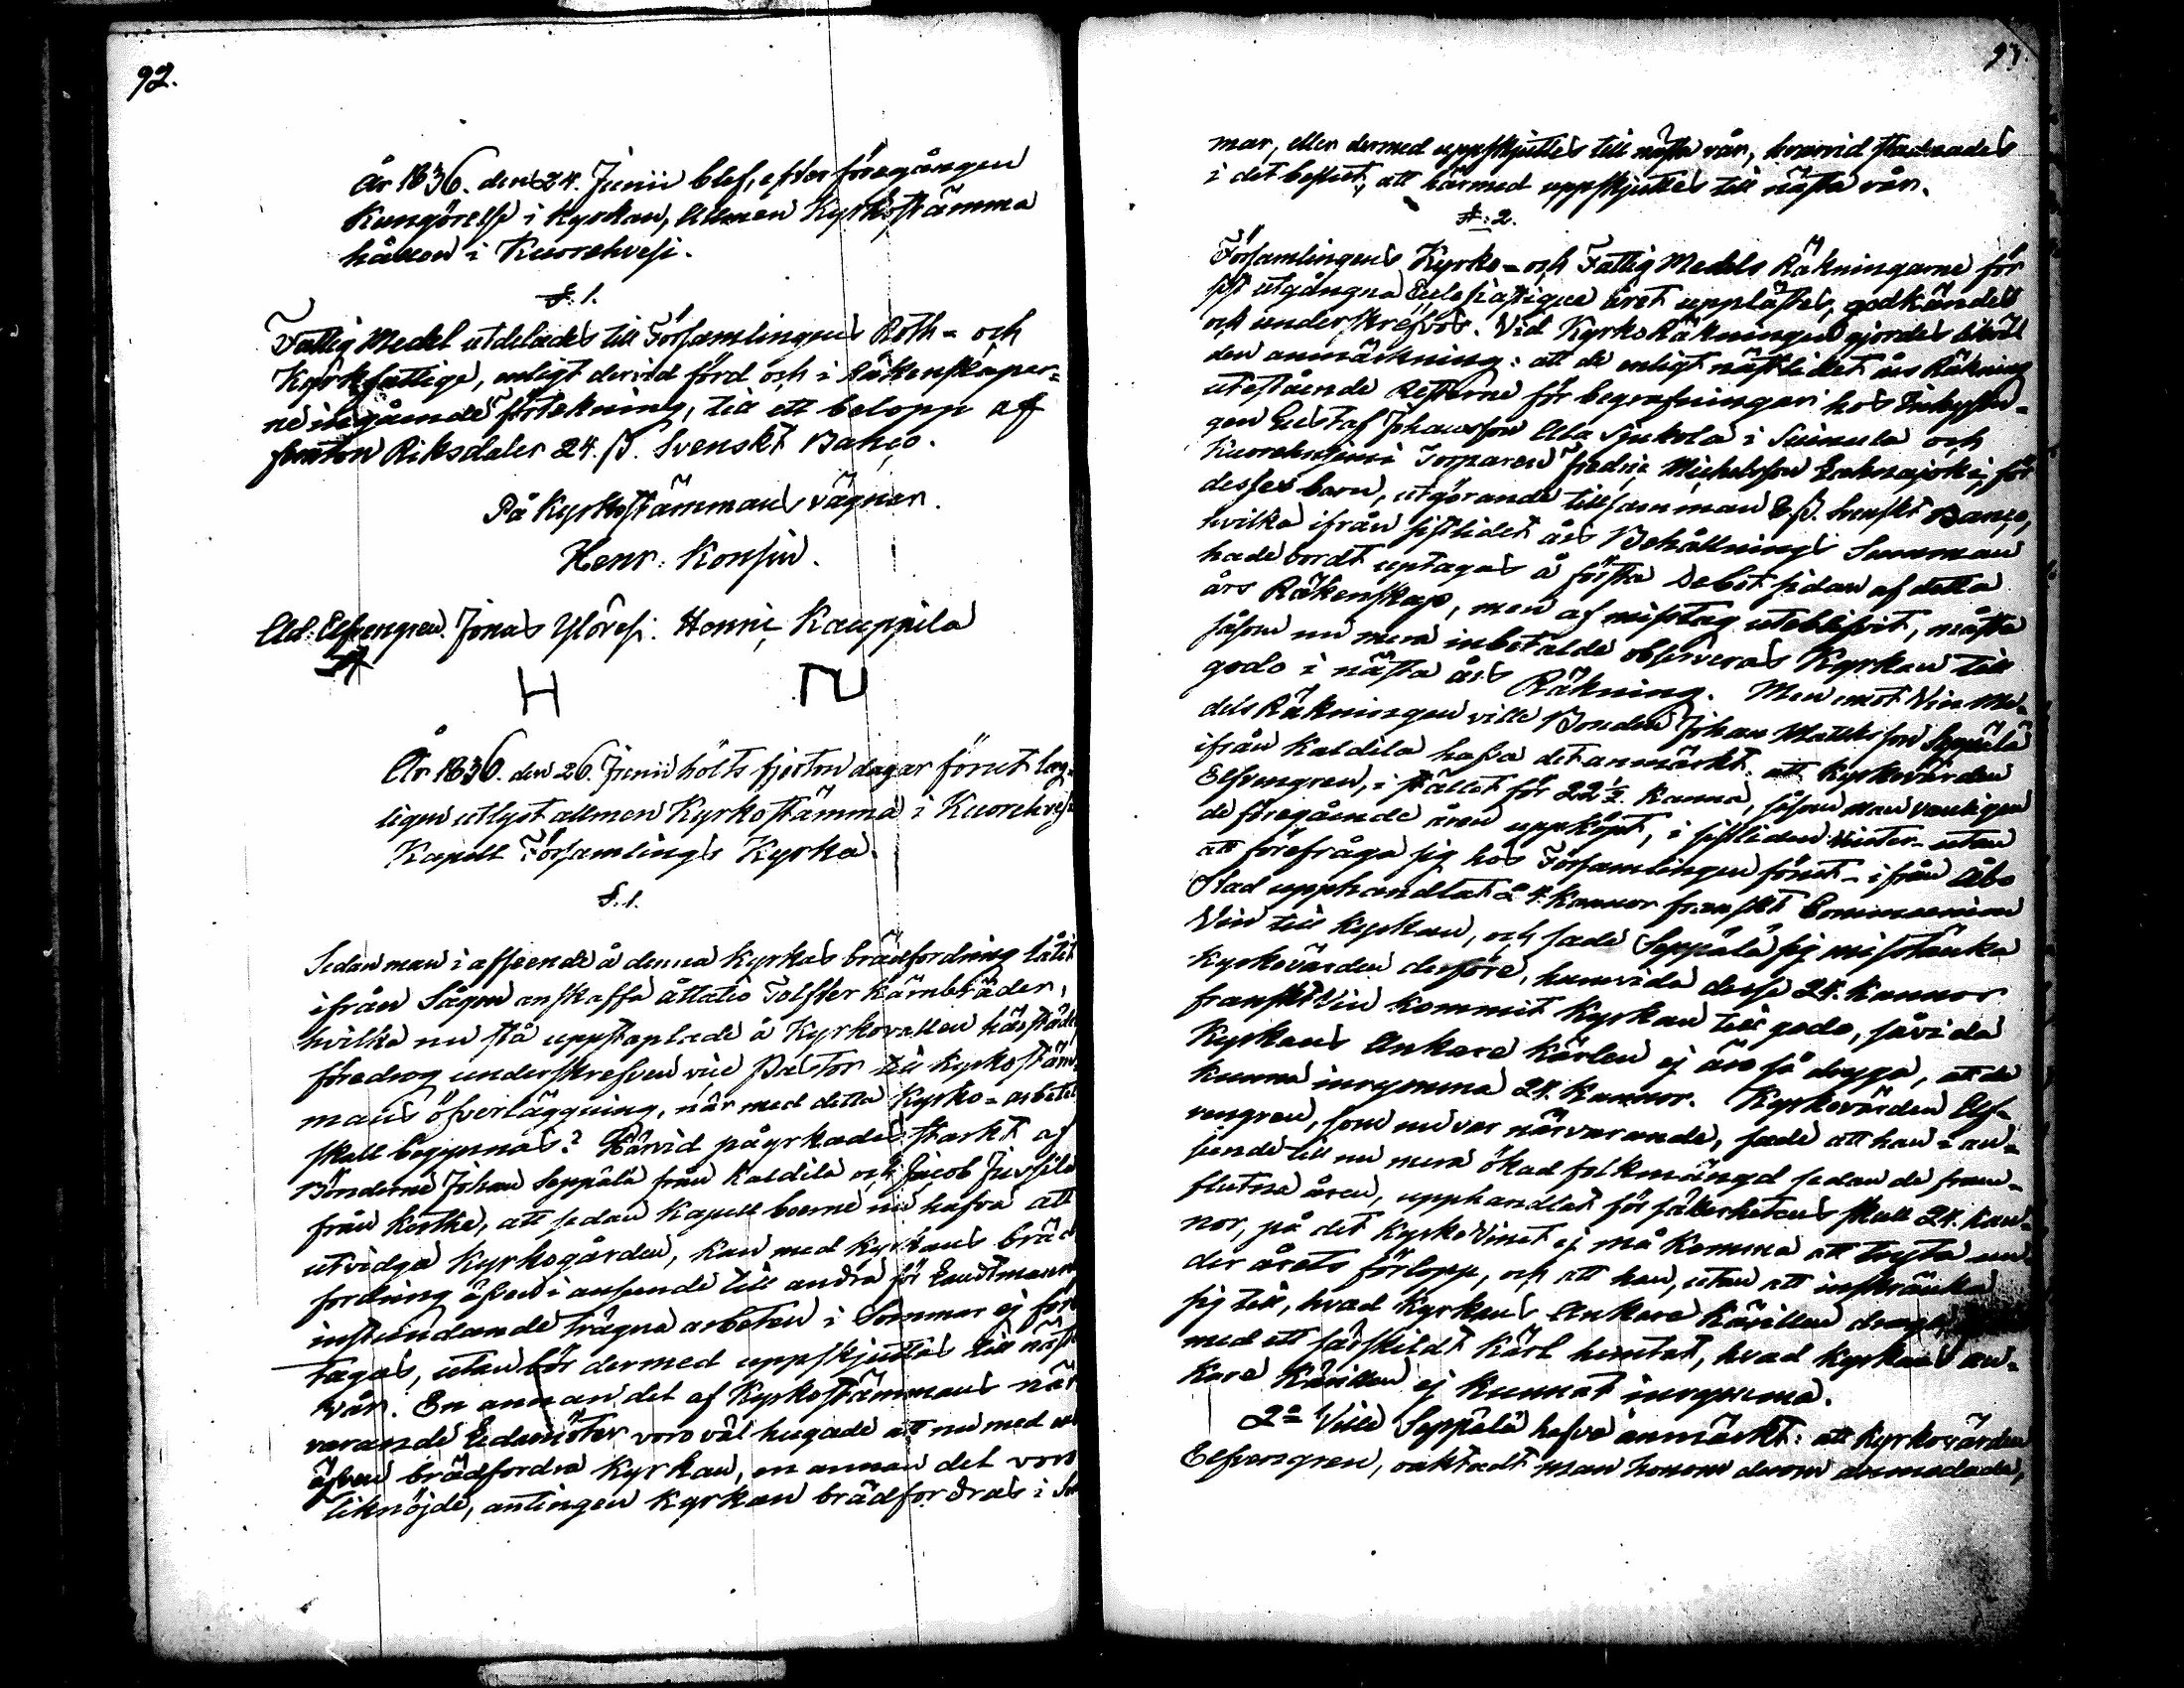 92.
År 1836. den 24. Junii blef, efter föregången
Kungörelse i Kyrkan, Allmän Kyrkostämma
hållen i Kuorehvesi.
§. 1.
Fattig Medel utdelades till Församlingens Roth- och
Kyrkfattige, enligt dervid förd och i Räkenskaper-
ne ingående förtekning, till ett belopp af
femton Riksdaler 24. ß. Svenskt Banco.
På Kyrkostämmans vägnar.
Henr: Konsin.
Ad: Elfvengren. Jonas Ylöresi. Henric Kauppila
År 1836. den 26. Junii hölts fjorton dagar förut lag-
ligen utlyst allmen Kyrkostämma i Kuorehvesi
Kapell Församlings Kyrka.
§. 1.
Sedan man i afseende å denna Kyrkas brädfordning låtit
ifrån Sågen anskaffa åttatio Tolfter Kärnbräder,
hvilka nu stå uppstaplade å Kyrkovallen härstädes
föredrog underskrefven vice Pastor till Kyrkostäm-
mans öfverläggning, när med detta Kyrko-arbete
skall begynnas? Härvid påyrkades starkt af
Bönderne Johan Seppälä från Kaldila och Jacob Jussila
från Kostke, att sedan Kapell boerne nu hafva att
utvidga Kyrkogården, kan med Kyrkans bräd
fordning äfven i anseende till andra för Landtmannen
instundande trägna arbeten i Sommar ej före
tagas, utan bör dermed uppskjuttas till nästa
vår. En annan del af Kyrkostämmans när
varande Ledamöter voro väl hugade att nu med
äfven brädfordra Kyrkan, en annan del voro
liknöjde, antingen Kyrkan brädfordras i Som
93.
mar, eller dermed uppskjuttes till nästa vår, hvarvid stadnades
i det beslut, att härmed uppskjuttes till nästa vår.
§. 2.
Församlingens Kyrko- och Fattig Medels Räkningarne för
sist utgångna Eclesiastique året upplästes, godkändes
och underskrefvos. Vid Kyrko Räkningen gjordes likväl
den anmärkning: att de enligt nästlidet års Räkning
utestående Resterne för begrafningar hos Inhysin-
gen Gustaf Johansson Ala Sjukola i Suinula och
Kuorehvesi Torparen Fredric Michelsson för
desses barn, utgörande tillsamman 8 ß. Svenskt Banco,
hvilka ifrån sistlidet års Behållnings Summan
hade bordt uptagas å första Debet sidan af detta
års Räkenskap, men af misstag uteblifvit, måste
såsom nu mera inbetalde observeras Kyrkan till
godo i nästa års Räkning. Men emot Vin Me-
dels Räkningen ville Bonden Johan Mattsson Seppälä
ifrån Kaldila hafva det anmärkt: att Kyrkovärden
Elfvengren, i stället för 22½ Kanna, såsom man vanligen
de föregående åren uppköpt, i sistliden vinter - utan
att förefråga sig hos Församlingen förut - ifrån Åbo
Stad upphandlat 24. Kannor franskt Communion
Vin till Kyrkan, och sade Seppälä sig misstänka
Kyrkovärden derföre, huruvida desse 24. Kannor
franskt Vin kommit Kyrkan till godo, såvida
Kyrkans Ankare Kärlen ej äro så dryga, att de
kunna inrymma 24. Kannor. Kyrkovärden Elf-
vengren, som nu var närvarande, sade att han i an-
seende till nu mera ökad folkmängd sedan de fram-
flutna åren, upphandlat för säkerhetens skull 24. Kan-
nor, på det Kyrko Vinet ej må komma att tryta un-
der årets förlopp, och att han, utan att inskränka
sig till, hvad Kyrkans Ankare Kärillen
med ett särskildt Kärl hemtat, hvad Kyrkans An-
kare Kärillen ej kunnat inrymma.
2:o Ville Seppälä hafva anmärkt: att Kyrkovärden
Elfvengren, oaktadt man honom derom anmodade,